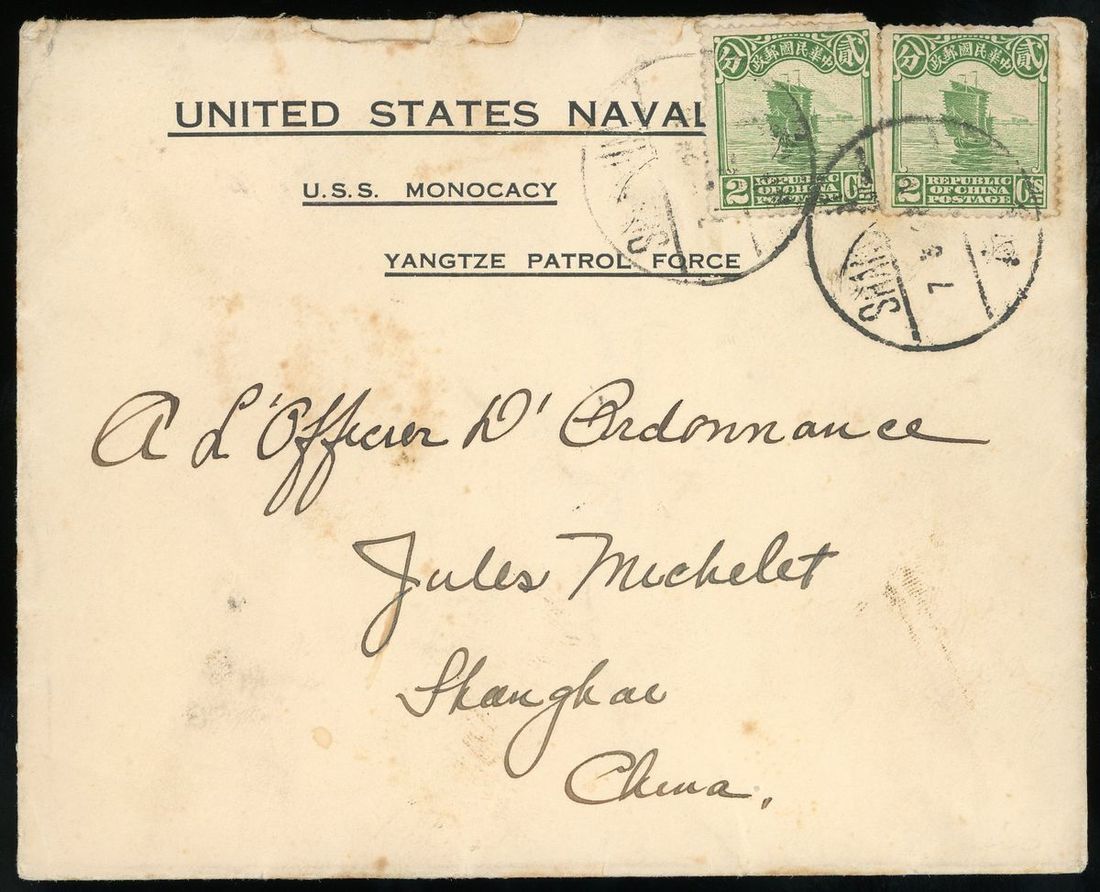 UNITED STATES NAVAL
U.S.S. MONOCACY
YANGTZE PATROL FORCE
分 政郵國民華中 貳
2 REPUBLIC OF CHINA POSTAGE Cts
分 政郵國民華中 貳
2 REPUBLIC OF CHINA POSTAGE Cts
7
A L'Officier D'Ordonnance
Jules Michelet
Shanghae
China.